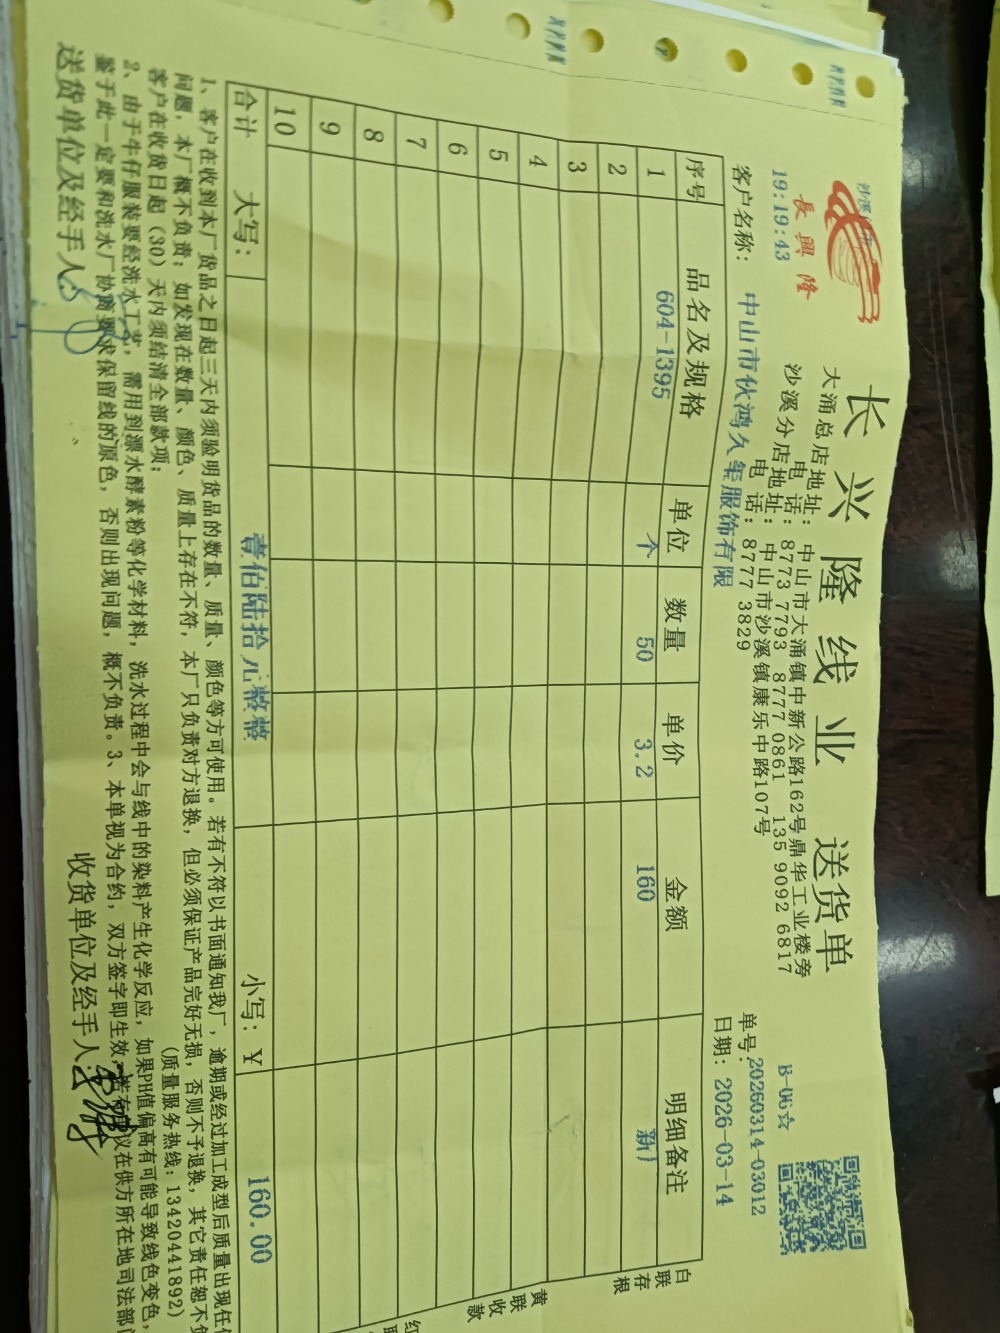 长兴隆线业 送货单
長興隆
19:19:43
大涌总店地址：中山市大涌镇中新公路162号鼎华工业楼旁
电 话：8773 7793 8777 0861 135 9092 6817
沙溪分店地址：中山市沙溪镇康乐中路107号
电 话：8777 3829
B-06☆
单号：20260314-03012
客户名称：中山市伙鸿久玺服饰有限
日期：2026-03-14
序号 品名及规格 单位 数量 单价 金额 明细备注
1 604-1395 个 50 3.2 160
2
3
4
5
6
7
8
9
10
合计 大写：壹佰陆拾元整整 小写：￥ 160.00
白联存根
黄联收款
红联
1、客户在收到本厂货品之日起三天内须验明货品的数量、质量、颜色等方可使用。若有不符以书面通知我厂，逾期或经过加工成型后质量出现任何
问题，本厂概不负责；如发现在数量、颜色、质量上存在不符，本厂只负责对方退换，但必须保证产品完好无损，否则不予退换，其它责任恕不负
客户在收货日起（30）天内须结清全部款项； （质量服务热线：13420441892）
2、由于牛仔服装要经洗水工艺，需用到漂水酵素粉等化学材料，洗水过程中会与线中的染料产生化学反应，如果PH值偏高有可能导致线色变色，
鉴于此一定要和洗水厂协商要求保留线的原色，否则出现问题，概不负责。3、本单视为合约，双方签字即生效，若有争议在供方所在地司法部门
送货单位及经手人 收货单位及经手人